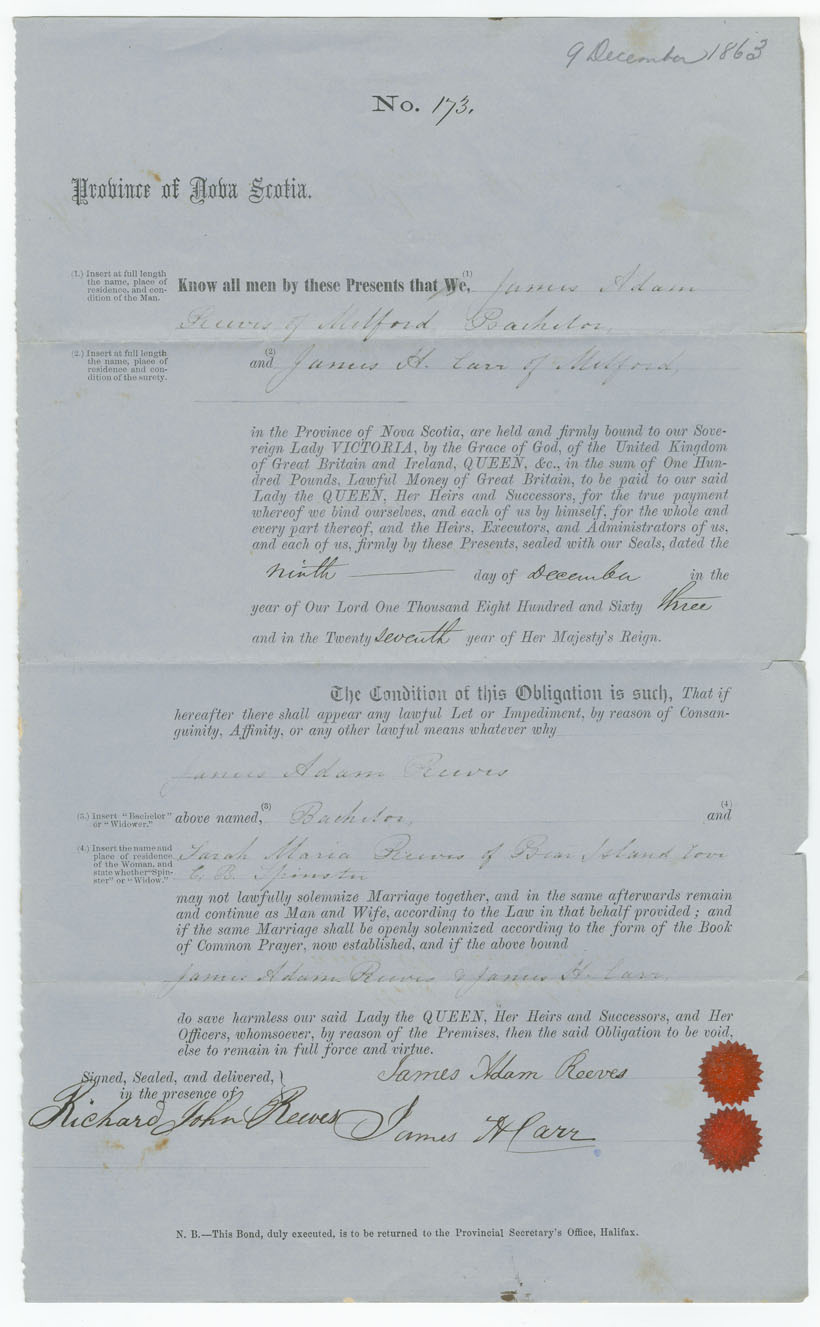 9 December 1863
No. 173.
Province of Nova Scotia.
(1.) Insert at full length
the name, place of
residence, and con-
dition of the Man.
Know all men by these Presents that We, (1) James Adam
Reeves of Milford, Bachelor,
(2.) Insert at full length
the name, place of
residence and con-
dition of the surety.
and (2) James H. Carr of Milford,
in the Province of Nova Scotia, are held and firmly bound to our Sove-
reign Lady VICTORIA, by the Grace of God, of the United Kingdom
of Great Britain and Ireland, QUEEN, &c., in the sum of One Hun-
dred Pounds, Lawful Money of Great Britain, to be paid to our said
Lady the QUEEN, Her Heirs and Successors, for the true payment
whereof we bind ourselves, and each of us by himself, for the whole and
every part thereof, and the Heirs, Executors, and Administrators of us,
and each of us, firmly by these Presents, sealed with our Seals, dated the
ninth day of December in the
year of Our Lord One Thousand Eight Hundred and Sixty three
and in the Twenty seventh year of Her Majesty's Reign.
The Condition of this Obligation is such, That if
hereafter there shall appear any lawful Let or Impediment, by reason of Consan-
guinity, Affinity, or any other lawful means whatever why
James Adam Reeves
(3.) Insert "Bachelor"
or "Widower."
above named, (3) Bachelor, and (4)
(4.) Insert the name and
place of residence
of the Woman, and
state whether "Spin-
ster" or "Widow."
Sarah Maria Reeves of Bear Island Cove
C. B. Spinster
may not lawfully solemnize Marriage together, and in the same afterwards remain
and continue as Man and Wife, according to the Law in that behalf provided ; and
if the same Marriage shall be openly solemnized according to the form of the Book
of Common Prayer, now established, and if the above bound
James Adam Reeves & James H. Carr,
do save harmless our said Lady the QUEEN, Her Heirs and Successors, and Her
Officers, whomsoever, by reason of the Premises, then the said Obligation to be void,
else to remain in full force and virtue.
Signed, Sealed, and delivered,
in the presence of
James Adam Reeves
Richard John Reeves
James H Carr
N. B.—This Bond, duly executed, is to be returned to the Provincial Secretary's Office, Halifax.